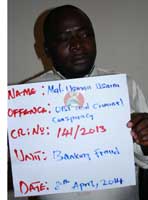 NAME: Mal. Usman Usaini
OFFENCE: Obt and Criminal
Conspiracy
CR: NO: 141/2013
UNIT: Banking Fraud
DATE: 8th April, 2014